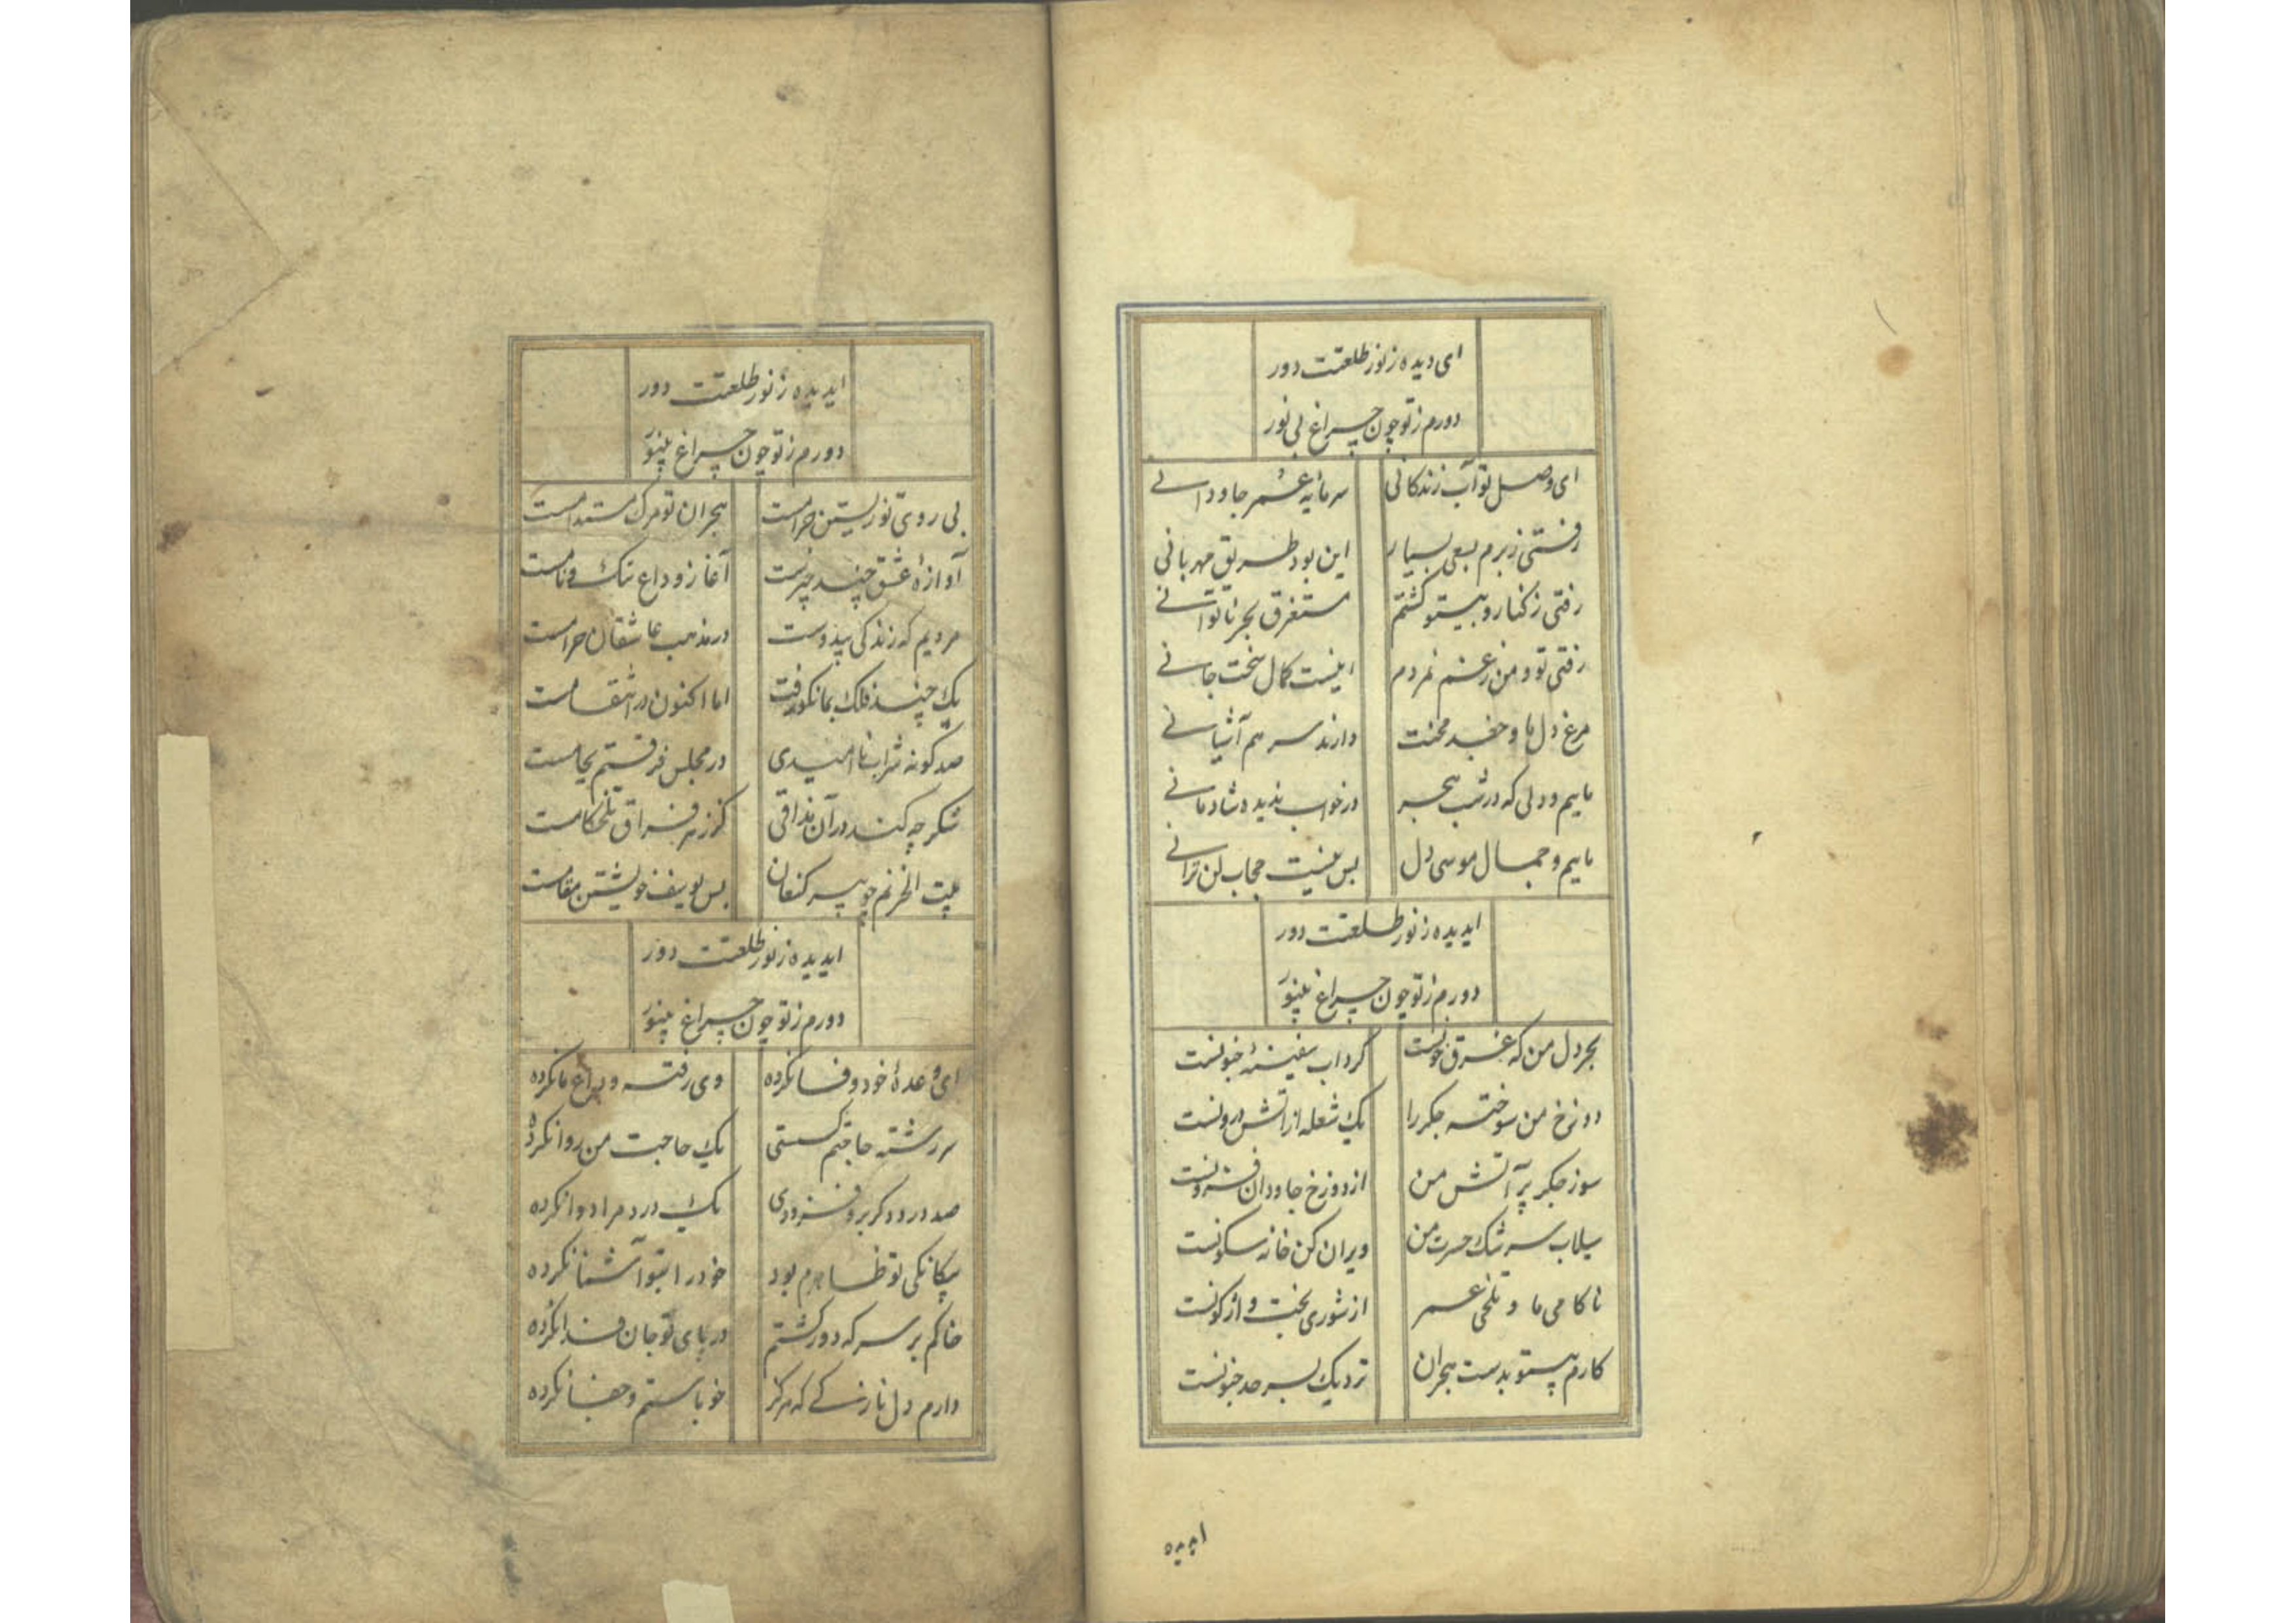 ای دیده ز نور طلعتت دور
دورم ز تو چون چراغ بی نور
ای وصل تو آب زندکانی سرمایه عمر جاودانی
رفتی ز برم بسعی بسیار این بود طریق مهربانی
رفتی ز کنار و بیتو کشتم مستغرق بحر ناتوانی
رفتی تو و من ز غم نمردم اینست کمال سخت جانی
مرغ دل ما و جغد محنت دارند سر هم آشیانی
ماییم و دلی که در شب هجر در خواب ندیده شادمانی
ماییم و جمال موسی دل بس نیست حجاب لن ترانی
ایدیده ز نور طلعتت دور
دورم ز تو چون چراغ بینور
بحر دل من که غرق خونست کرداب سفینهٔ جنونست
دوزخ من سوخته جکر را یک شعله از آتش درونست
سوز جکر پر آتش من از دوزخ جاودان فزونست
سیلاب سرشک حسرت من ویران کن خانه سکونست
ناکامی ما و تلخی عمر از شوری بخت واژکونست
کارم بیتو بدست هجران نزدیک بسرحد جنونست
ایدیده
ایدیده ز نور طلعتت دور
دورم ز تو چون چراغ بینور
بی روی تو زیستن حرامست هجران تو مرک مستدامست
آوازهٔ عشق چند چیزست آغاز وداع ننک و نامست
مردیم که زندکی بیدوست در مذهب عاشقان حرامست
یک چند فلک بما نکو رفت اما اکنون در انتقامست
صد کونه شراب ناامیدی در مجلس فرقتم بجامست
شکر چه کند در آن مذاقی کز زهر فراق تلخکامست
بیت الحزنم چو پیر کنعان بس یوسف خویشتن مقامست
ایدیده ز نور طلعتت دور
دورم ز تو چون چراغ بینور
ای وعدهٔ خود وفا نکرده وی رفته و وداع ما نکرده
سررشته حاجتم کسستی یک حاجت من روا نکرده
صد درد دکر برو فزودی یک درد مرا دوا نکرده
بیکانکی تو ظاهرم بود خود را بتو آشنا نکرده
خاکم بر سر که دور کشتم در پای تو جان فدا نکرده
دارم دل نازکی که هرکز خو با ستم و جفا نکرده